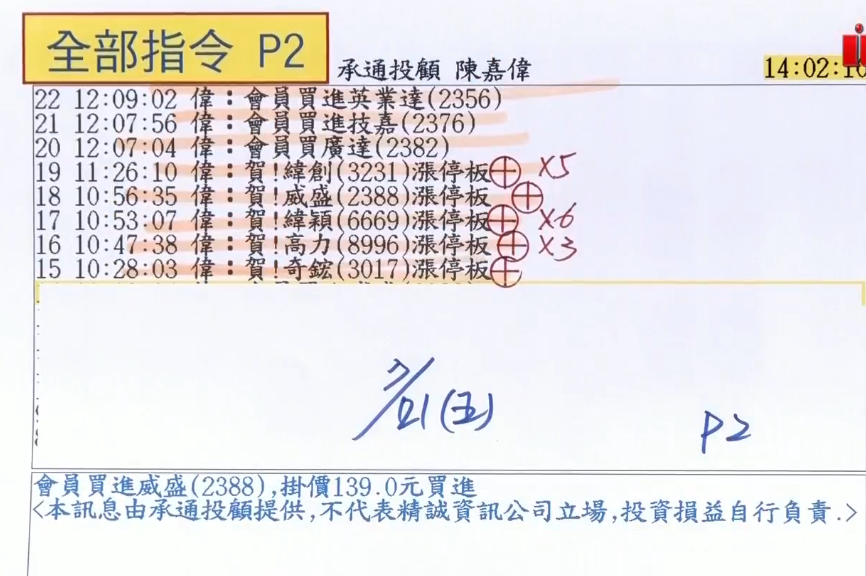 全部指令 P2
承通投顧 陳嘉偉
14:02:10
22 12:09:02 偉：會員買進英業達(2356)
21 12:07:56 偉：會員買進技嘉(2376)
20 12:07:04 偉：會員買廣達(2382)
19 11:26:10 偉：賀!緯創(3231)漲停板 x5
18 10:56:35 偉：賀!威盛(2388)漲停板
17 10:53:07 偉：賀!緯穎(6669)漲停板 x6
16 10:47:38 偉：賀!高力(8996)漲停板 x3
15 10:28:03 偉：賀!奇鋐(3017)漲停板
7/21(五)
P2
會員買進威盛(2388),掛價139.0元買進
<本訊息由承通投顧提供,不代表精誠資訊公司立場,投資損益自行負責.>